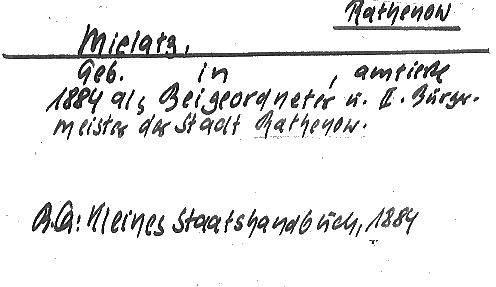 Rathenow
Mielatz,
Geb. in , amtierte
1884 als Beigeordneter u. II. Bürger-
meister der Stadt Rathenow.
B.Q.: Kleines Staatshandbuch, 1884